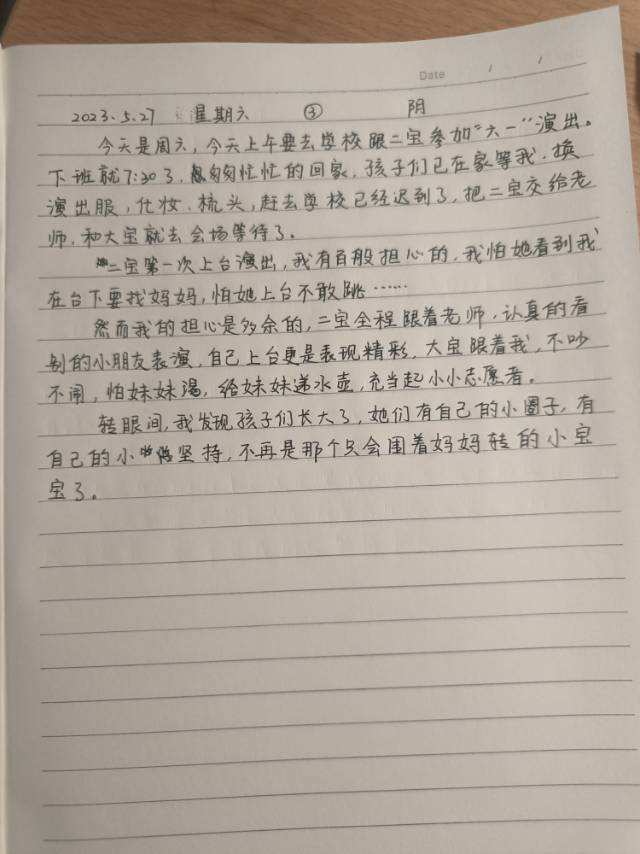 Date / /
2023.5.27 星期六 ③ 阴
今天是周六，今天上午要去学校跟二宝参加“六一”演出。
下班就7:30了，匆匆忙忙的回家，孩子们已在家等我，换
演出服，化妆、梳头，赶去学校已经迟到了，把二宝交给老
师，和大宝就去会场等待了。
二宝第一次上台演出，我有百般担心的，我怕她看到我
在台下要找妈妈，怕她上台不敢跳……
然而我的担心是多余的，二宝全程跟着老师，认真的看
别的小朋友表演，自己上台更是表现精彩，大宝跟着我，不吵
不闹，怕妹妹渴，给妹妹递水壶，充当起小小志愿者。
转眼间，我发现孩子们长大了，她们有自己的小圈子，有
自己的小坚持，不再是那个只会围着妈妈转的小宝
宝了。